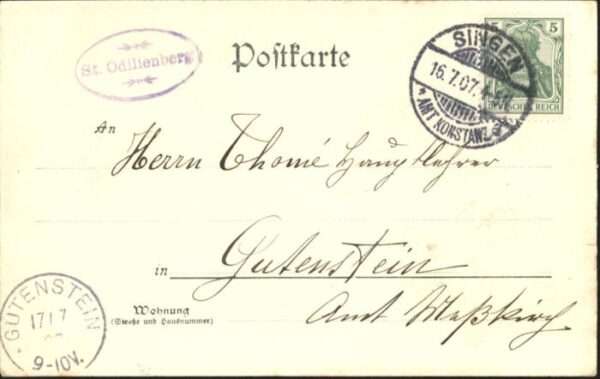 St. Odilienberg
Postkarte
SINGEN
16.7.07.
* AMT KONSTANZ
5 5
DEUTSCHES REICH
An
Herrn Thomé Hauptlehrer
in Gutenstein
Amt Meßkirch.
Wohnung
(Straße und Hausnummer)
GUTENSTEIN
17 7
9-10V.